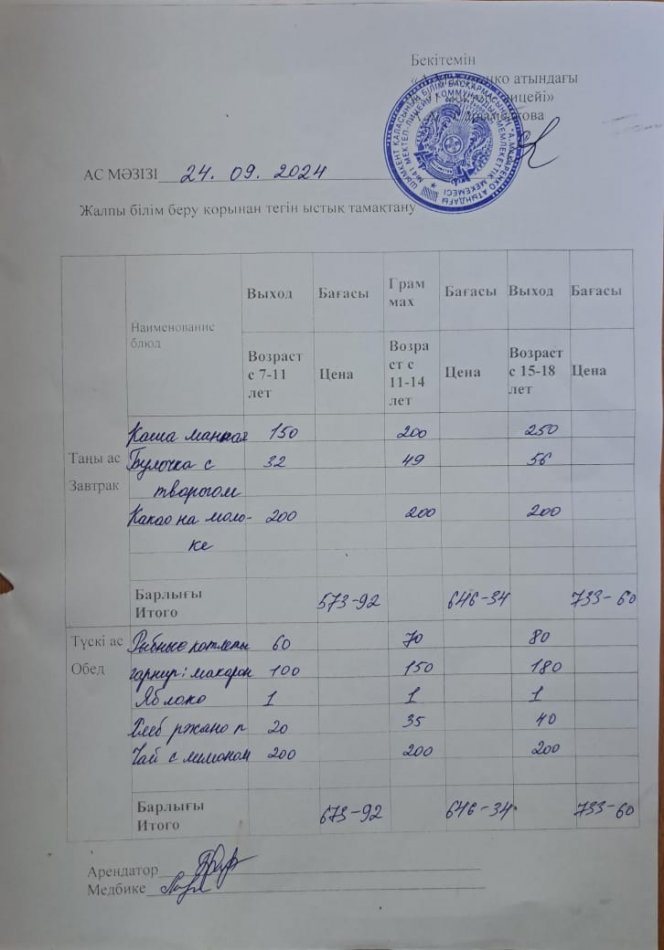 Бекітемін
атындағы
АС МӘЗІЗІ 24. 09. 2024
Жалпы білім беру қорынан тегін ыстық тамақтану
Наименование блюд Выход Бағасы Грам мах Бағасы Выход Бағасы
Возраст с 7-11 лет Цена Возра ст с 11-14 лет Цена Возраст с 15-18 лет Цена
Таңы ас
Завтрак
Каша манная 150 200 250
Булочка с 32 49 56
творогом
Какао на моло- 200 200 200
ке
Барлығы
Итого 573-92 646-34 733-60
Түскі ас
Обед
Рыбные котлеты 60 70 80
гарнир: макарон 100 150 180
Яблоко 1 1 1
Хлеб ржано п 20 35 40
Чай с лимоном 200 200 200
Барлығы
Итого 673-92 646-34 733-60
Арендатор
Медбике